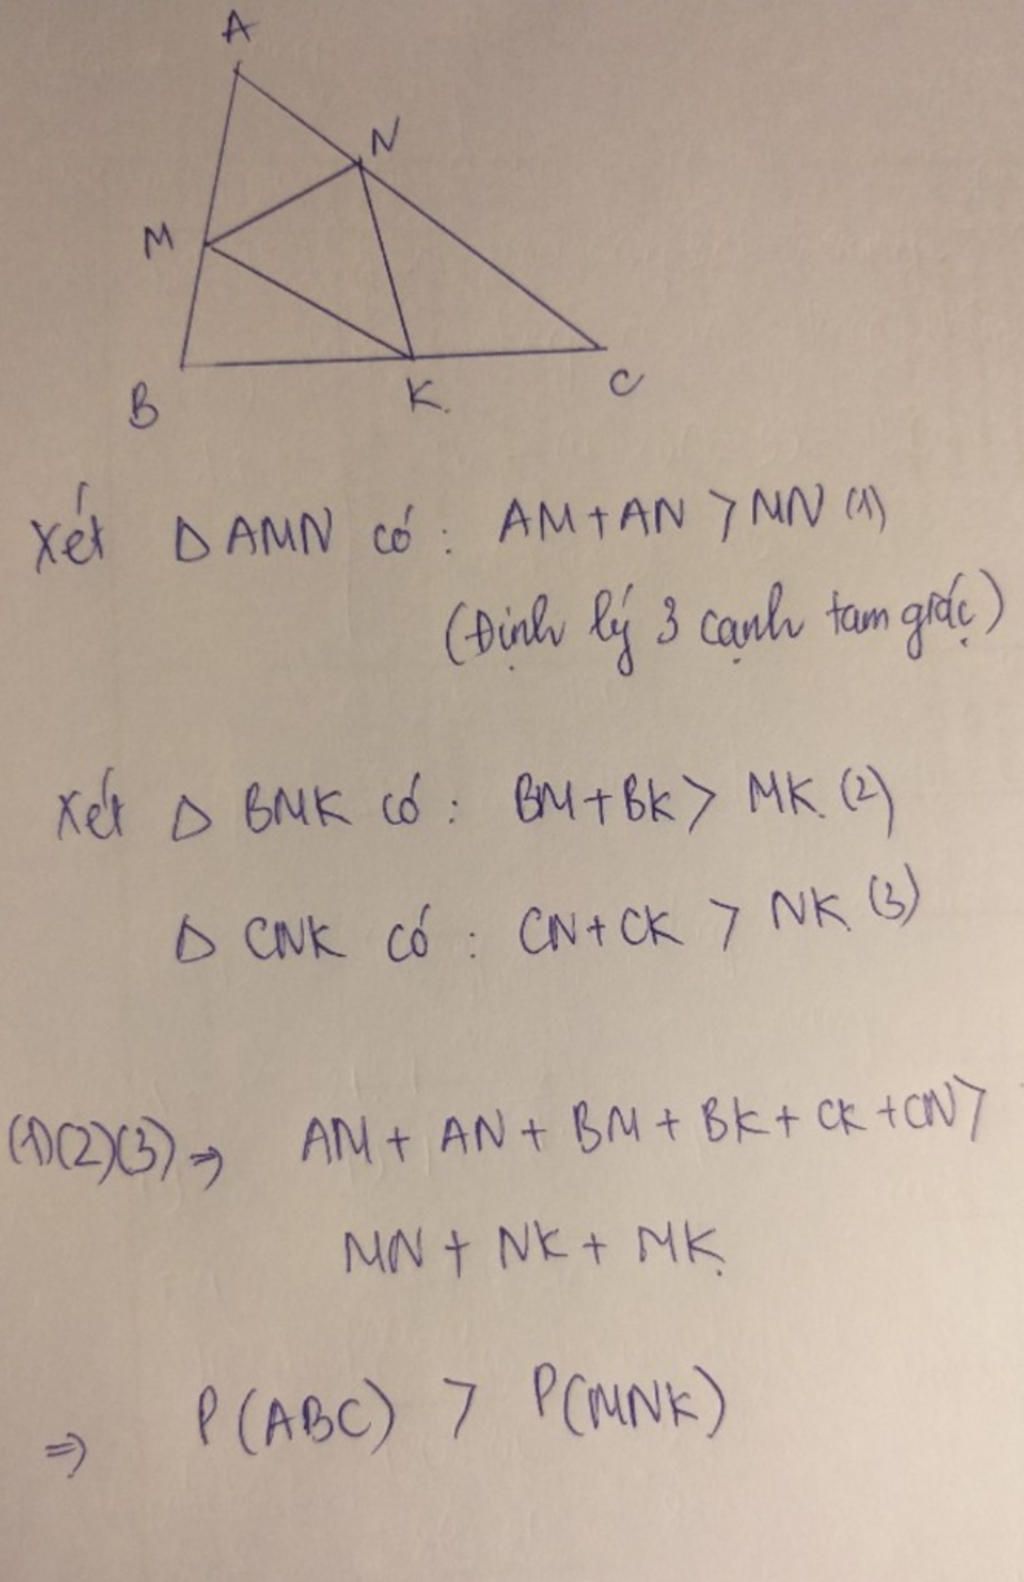 A
N
M
B
K
C
Xét Δ AMN có : AM + AN > MN (1)
(Định lý 3 cạnh tam giác)
Xét Δ BMK có : BM + BK > MK (2)
Δ CNK có : CN + CK > NK (3)
(1)(2)(3) ⇒ AM + AN + BM + BK + CK + CN >
MN + NK + MK
⇒ P(ABC) > P(MNK)